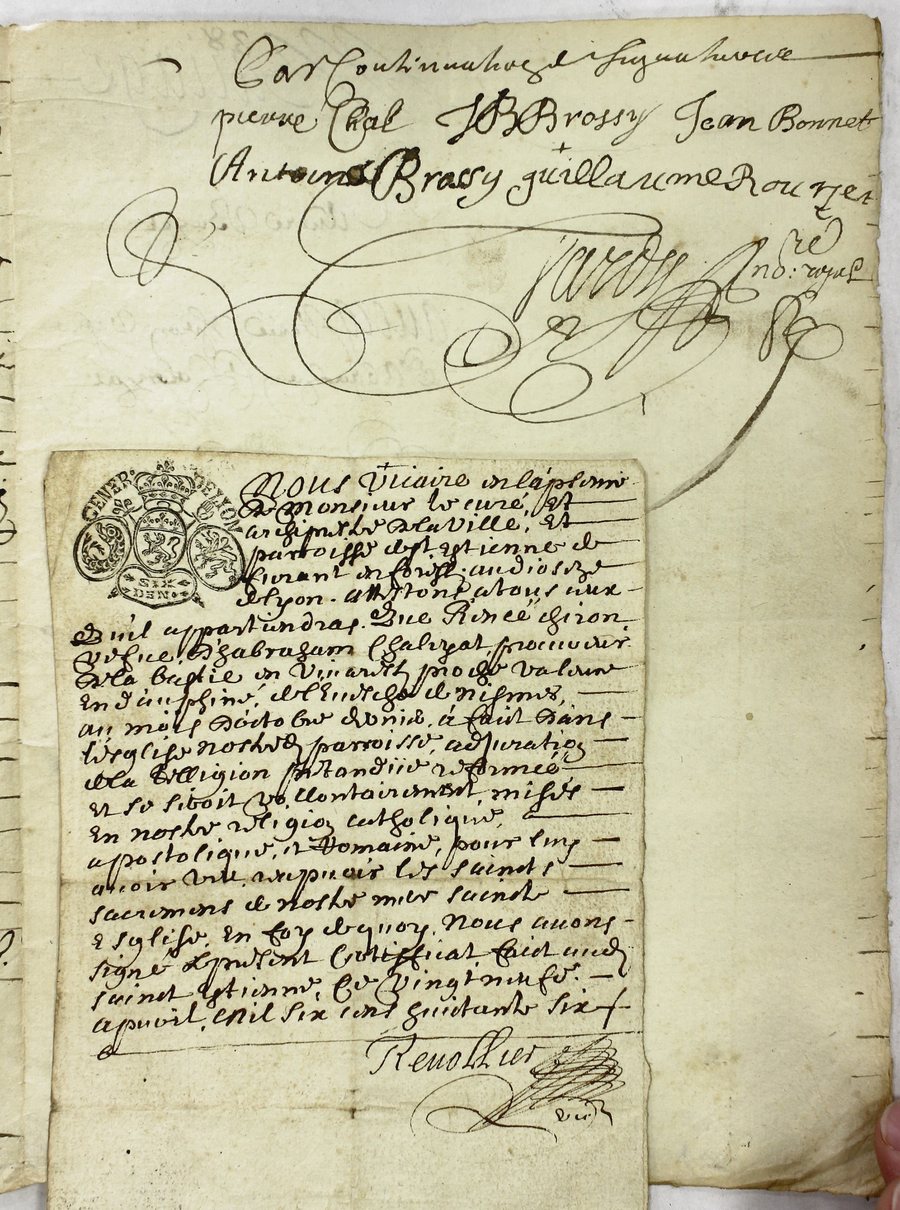 Par Continuation de signature de
pierre Chal JBBrossy Jean Bonnet
Antoine Brossy guillaume Rouzet
Tardy no.re royal
GENER. DE LYON
SIX
DEN.
Nous Vicaire en l'apsence
de Monsieur le curé, Et
archiprestre de la Ville, Et
parroisse de st Estienne de
furant en forest. au dioceze
de lyon. attestons a tous ceux
Qu'il appartiendras. Que René chiron
vefue d'habraham Chaleyat,
de la bastie en Vivarets proche valence
En d'auphiné, de l'Evesché de nismes,
au mois d'octobre dernier, à faict dans
l'esglise nostred parroisse, abjuration
de la Relligion prétandüe reformée
Et se seroit vollontairement, misés
En nostre religion catholique,
apostolique, et Romaine, pour luy
avoir veu recepvoir les saincts
sacremens de nostre mere saincte
Esglise. En foy de quoy. Nous avons
signé le présent Certifficat faict aud
sainct estienne, Ce vingt neufe
apvril, Mil six cens huictante six
Revollier
vic